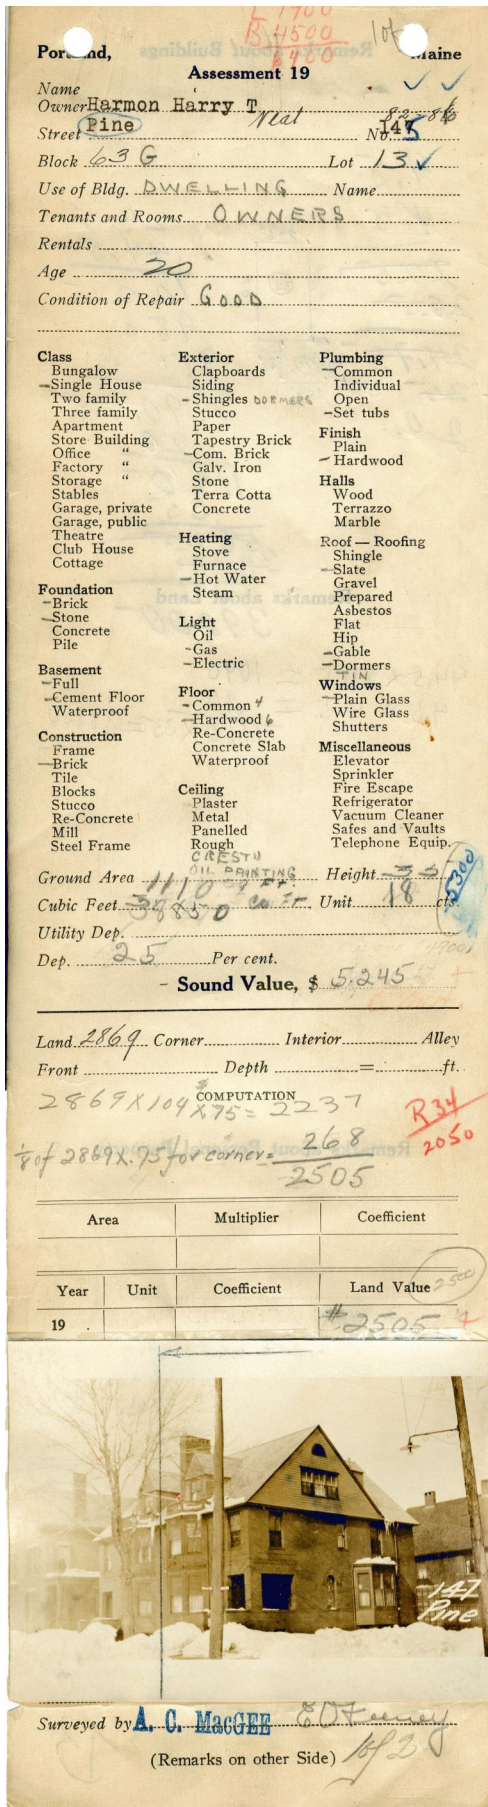 L 1900
B 4500
6400
1 of
Portland, Maine
Assessment 19
Name
Owner Harmon Harry T
Neal 82-86
Street Pine No. 147 5
Block 63 G Lot 13
Use of Bldg. DWELLING Name
Tenants and Rooms OWNERS
Rentals
Age 20
Condition of Repair GOOD
Class
Bungalow
Single House
Two family
Three family
Apartment
Store Building
Office "
Factory "
Storage "
Stables
Garage, private
Garage, public
Theatre
Club House
Cottage
Foundation
Brick
Stone
Concrete
Pile
Basement
Full
Cement Floor
Waterproof
Construction
Frame
Brick
Tile
Blocks
Stucco
Re-Concrete
Mill
Steel Frame
Exterior
Clapboards
Siding
Shingles DORMERS
Stucco
Paper
Tapestry Brick
Com. Brick
Galv. Iron
Stone
Terra Cotta
Concrete
Heating
Stove
Furnace
Hot Water
Steam
Light
Oil
Gas
Electric
Floor
Common 4
Hardwood 6
Re-Concrete
Concrete Slab
Waterproof
Ceiling
Plaster
Metal
Panelled
Rough
OIL PAINTING
Plumbing
Common
Individual
Open
Set tubs
Finish
Plain
Hardwood
Halls
Wood
Terrazzo
Marble
Roof — Roofing
Shingle
Slate
Gravel
Prepared
Asbestos
Flat
Hip
Gable
Dormers
TIN
Windows
Plain Glass
Wire Glass
Shutters
Miscellaneous
Elevator
Sprinkler
Fire Escape
Refrigerator
Vacuum Cleaner
Safes and Vaults
Telephone Equip.
Ground Area 1110 Ft. Height 35
Cubic Feet 38850 Cu Ft. Unit 18 cts.
5300
Utility Dep.
Dep. 25 Per cent.
Sound Value, $ 5.245
Land 2869 Corner Interior Alley
Front Depth = ft.
COMPUTATION
2869 X 104 X 75 = 2237
R34
2050
1/8 of 2869 X .75 for corner = 268
2505
Area Multiplier Coefficient
Year Unit Coefficient Land Value 2500
19 $2505
147
Pine
Surveyed by A. C. MacGEE E D Feeney
(Remarks on other Side) 1 of 2